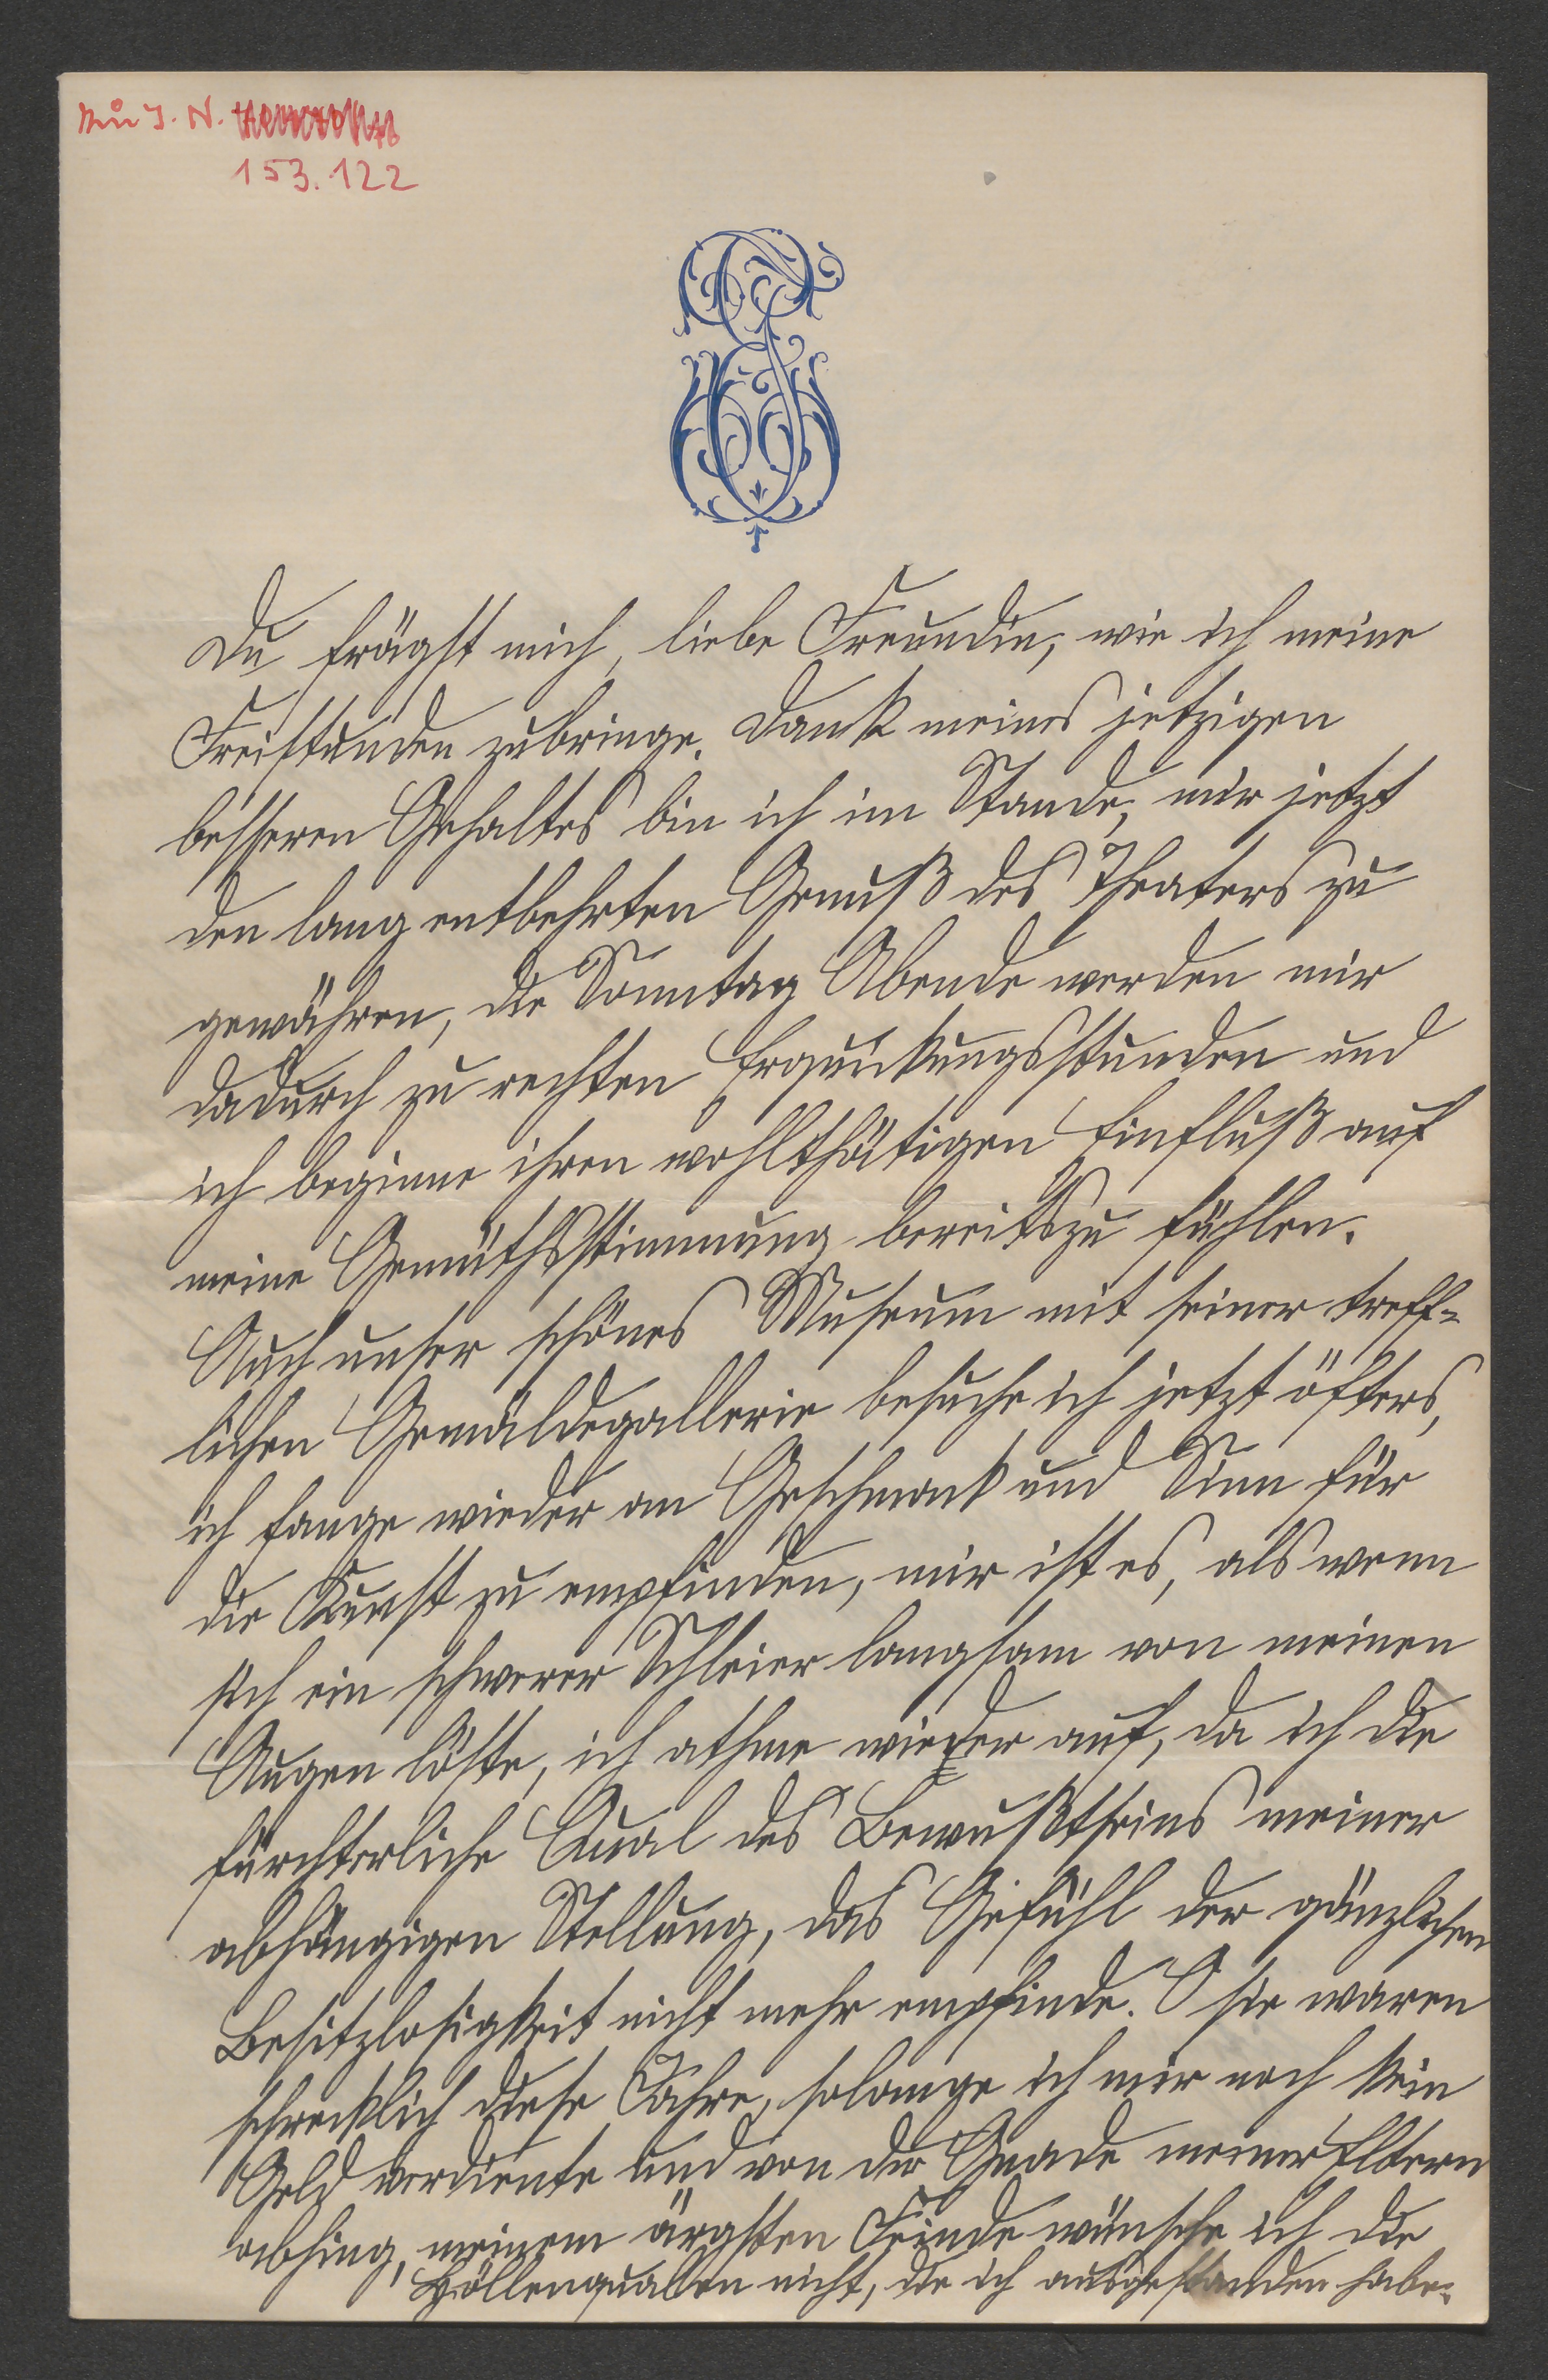 zu I. N.
153.122
Du frägst mich, liebe Freundin, wie ich meine
Freistunden zubringe. Dank meines jetzigen
besseren Gehaltes bin ich im Stande, mir jetzt
den lang entbehrten Genuß des Theaters zu
gewähren, die Sonntag Abende werden mir
dadurch zu rechten Erquickungsstunden und
ich beginne ihren wohlthätigen Einfluß auf
meine Gemüthsstimmung bereits zu fühlen.
Auch unser schönes Museum mit seiner treff-
lichen Gemäldegallerie besuche ich jetzt öfters,
ich fange wieder an Geschmack und Sinn für
die Kunst zu empfinden, mir ist es, als wenn
sich ein schwerer Schleier langsam von meinen
Augen löste, ich athme wieder auf, da ich die
fürchterliche Qual des Bewußtseins meiner
abhängigen Stellung, das Gefühl der gänzlichen
Besitzlosigkeit nicht mehr empfinde. O sie waren
schrecklich diese Jahre, solange ich mir noch kein
Geld verdiente und von der Gnade meiner Eltern
abhing, meinem ärgsten Feinde wünsche ich die
Höllenqualen nicht, die ich ausgestanden habe.